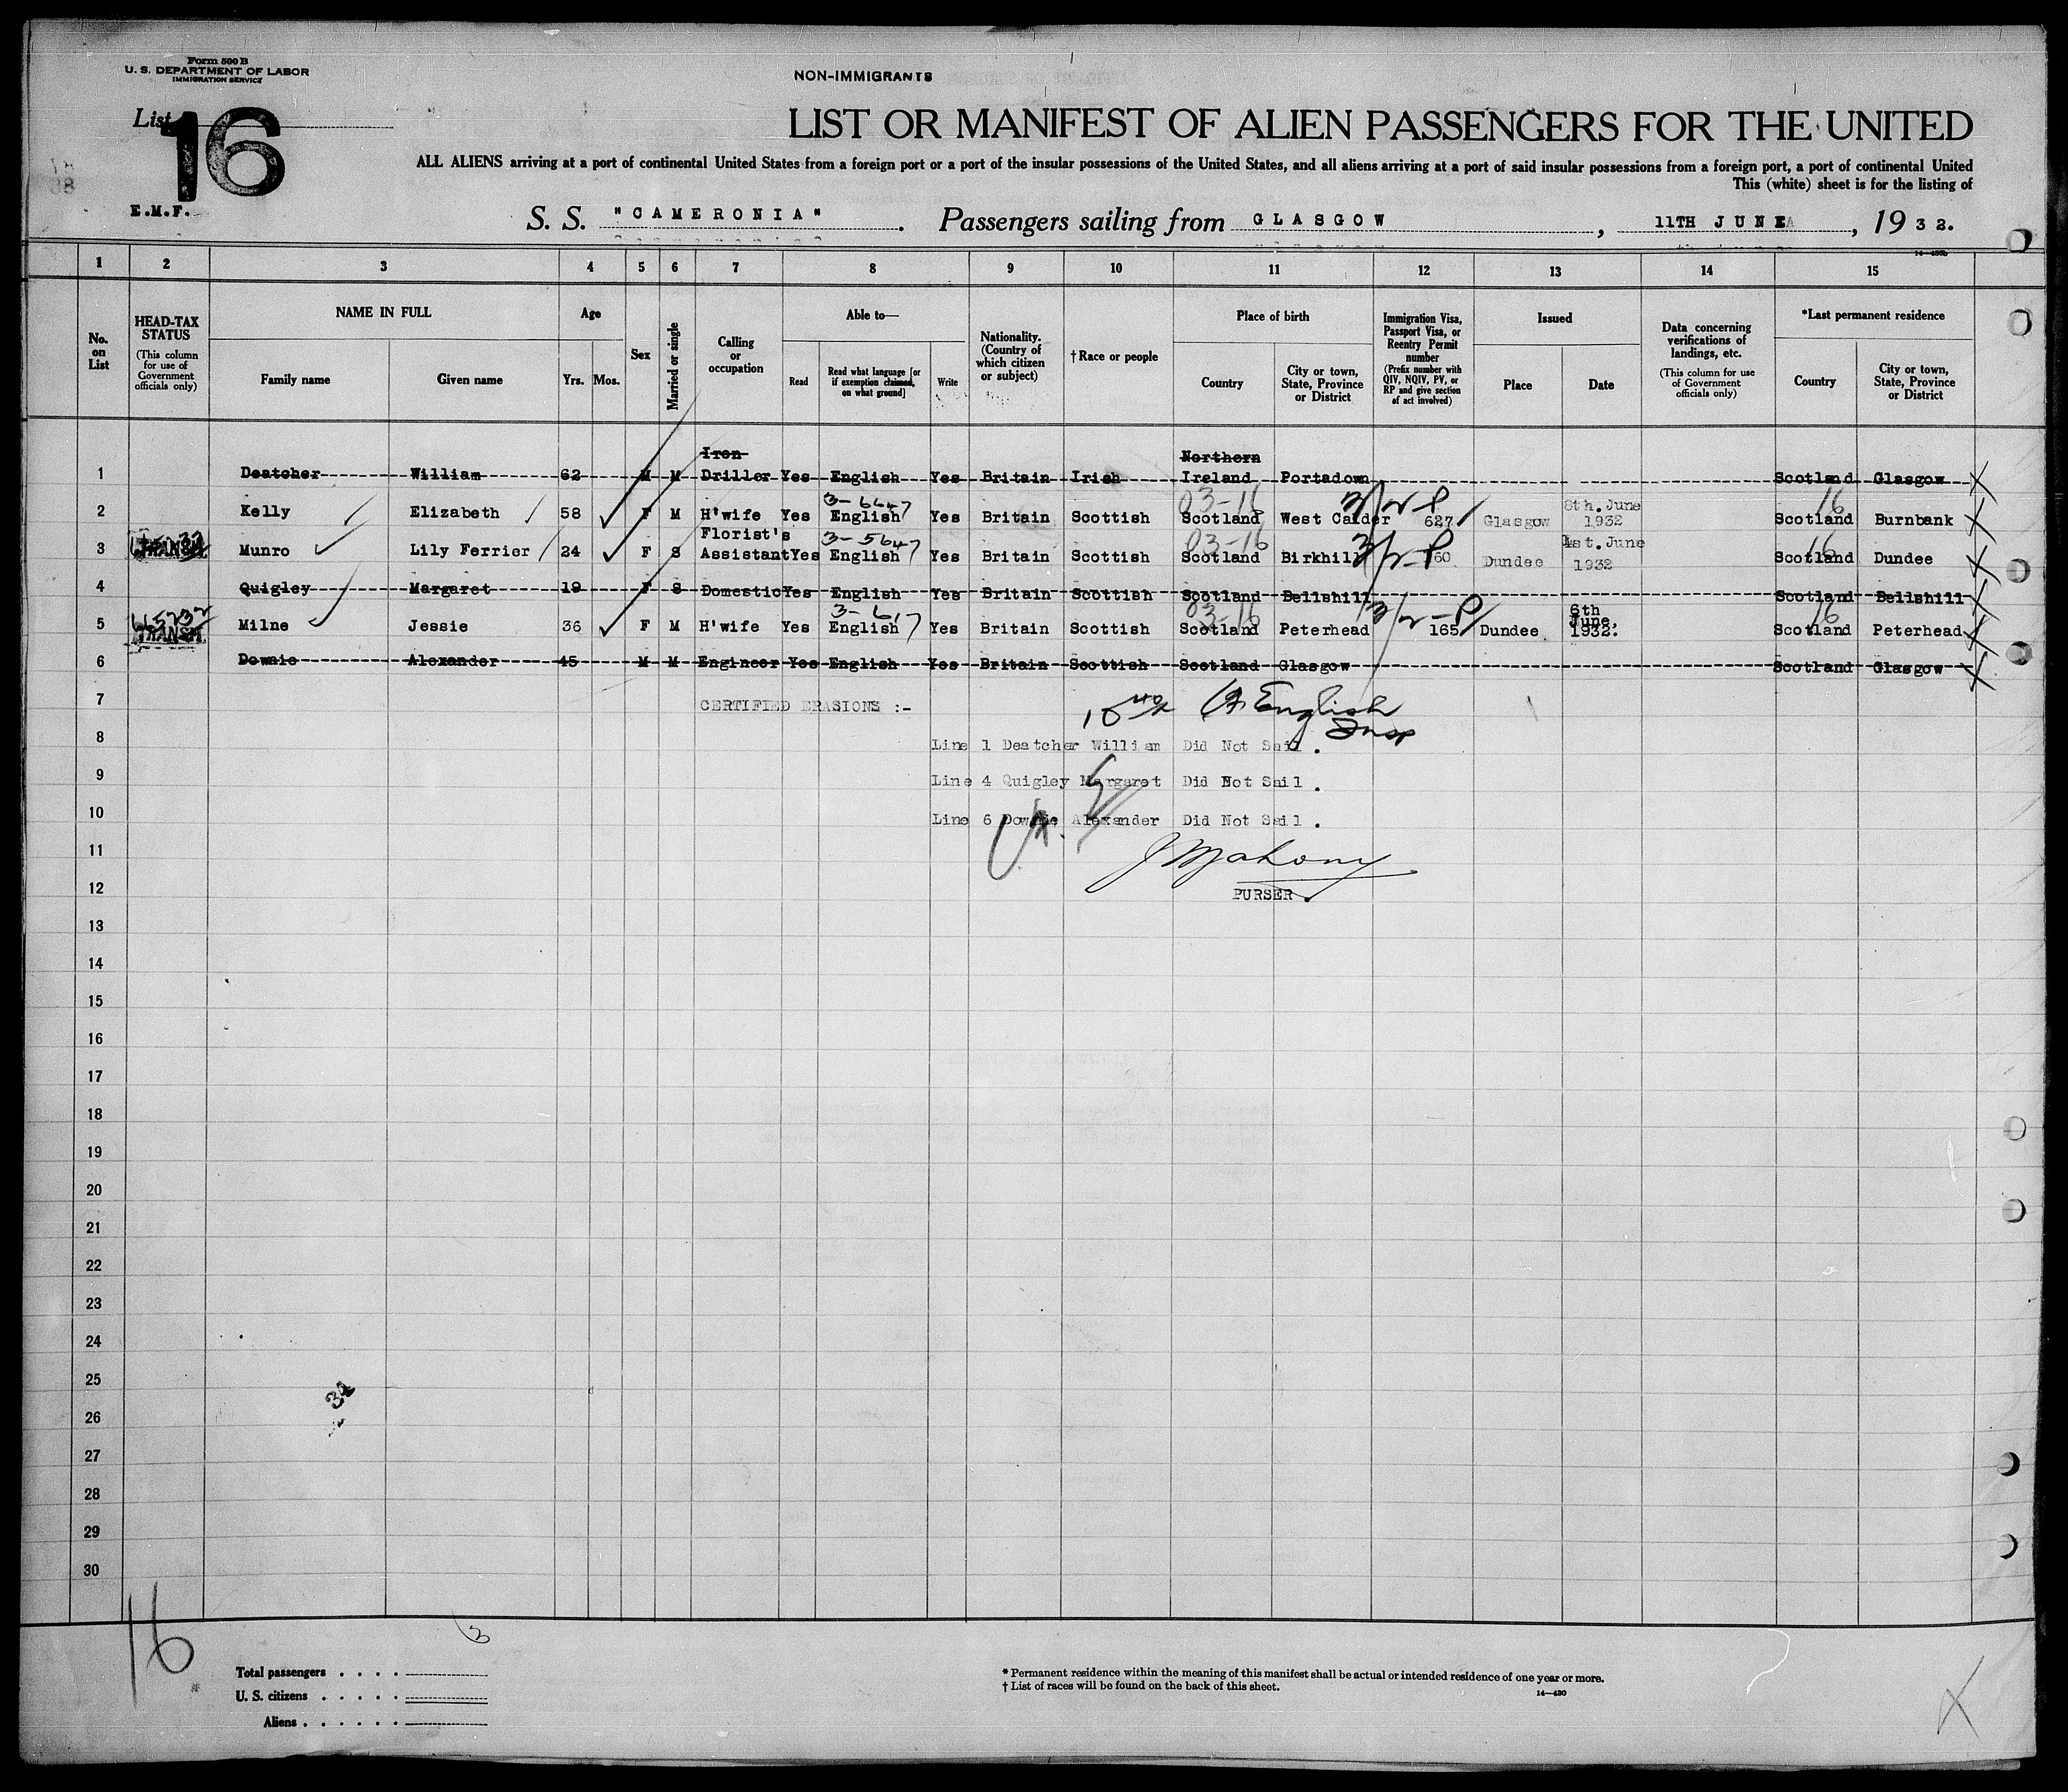 Form 500 B
U. S. DEPARTMENT OF LABOR
IMMIGRATION SERVICE
NON-IMMIGRANTS
List 16
LIST OR MANIFEST OF ALIEN PASSENGERS FOR THE UNITED
ALL ALIENS arriving at a port of continental United States from a foreign port or a port of the insular possessions of the United States, and all aliens arriving at a port of said insular possessions from a foreign port, a port of continental United
This (white) sheet is for the listing of
E.M.F.
S. S. "CAMERONIA". Passengers sailing from GLASGOW, 11TH JUNE, 1932.
1 2 3 4 5 6 7 8 9 10 11 12 13 14 15
No. on List
HEAD-TAX STATUS
(This column for use of Government officials only)
NAME IN FULL
Family name
Given name
Age
Yrs. Mos.
Sex
Married or single
Calling or occupation
Able to—
Read
Read what language [or if exemption claimed, on what ground]
Write
Nationality. (Country of which citizen or subject)
† Race or people
Place of birth
Country
City or town, State, Province or District
Immigration Visa, Passport Visa, or Reentry Permit number
(Prefix number with QIV, NQIV, PV, or RP and give section of act involved)
Issued
Place
Date
Data concerning verifications of landings, etc.
(This column for use of Government officials only)
*Last permanent residence
Country
City or town, State, Province or District
1 Deatcher William 62 M M Iron Driller Yes English Yes Britain Irish Northern Ireland Portadown Scotland Glasgow
2 Kelly Elizabeth 58 F M H'wife Yes English Yes Britain Scottish Scotland West Calder 627 Glasgow 8th. June 1932 Scotland Burnbank
3 TRANSIT Munro Lily Ferrier 24 F S Florist's Assistant Yes English Yes Britain Scottish Scotland Birkhill 60 Dundee 1st. June 1932 Scotland Dundee
4 Quigley Margaret 19 F S Domestic Yes English Yes Britain Scottish Scotland Bellshill Scotland Bellshill
5 TRANSIT Milne Jessie 36 F M H'wife Yes English Yes Britain Scottish Scotland Peterhead 165 Dundee 6th June, 1932. Scotland Peterhead
6 Downie Alexander 45 M M Engineer Yes English Yes Britain Scottish Scotland Glasgow Scotland Glasgow
7 CERTIFIED ERASIONS :-
English
8 Line 1 Deatcher William Did Not Sail.
9 Line 4 Quigley Margaret Did Not Sail.
10 Line 6 Downie Alexander Did Not Sail.
11 J Mahony
12 PURSER.
13
14
15
16
17
18
19
20
21
22
23
24
25
26
27
28
29
30
16
3
Total passengers
U. S. citizens
Aliens
* Permanent residence within the meaning of this manifest shall be actual or intended residence of one year or more.
† List of races will be found on the back of this sheet.
14—430